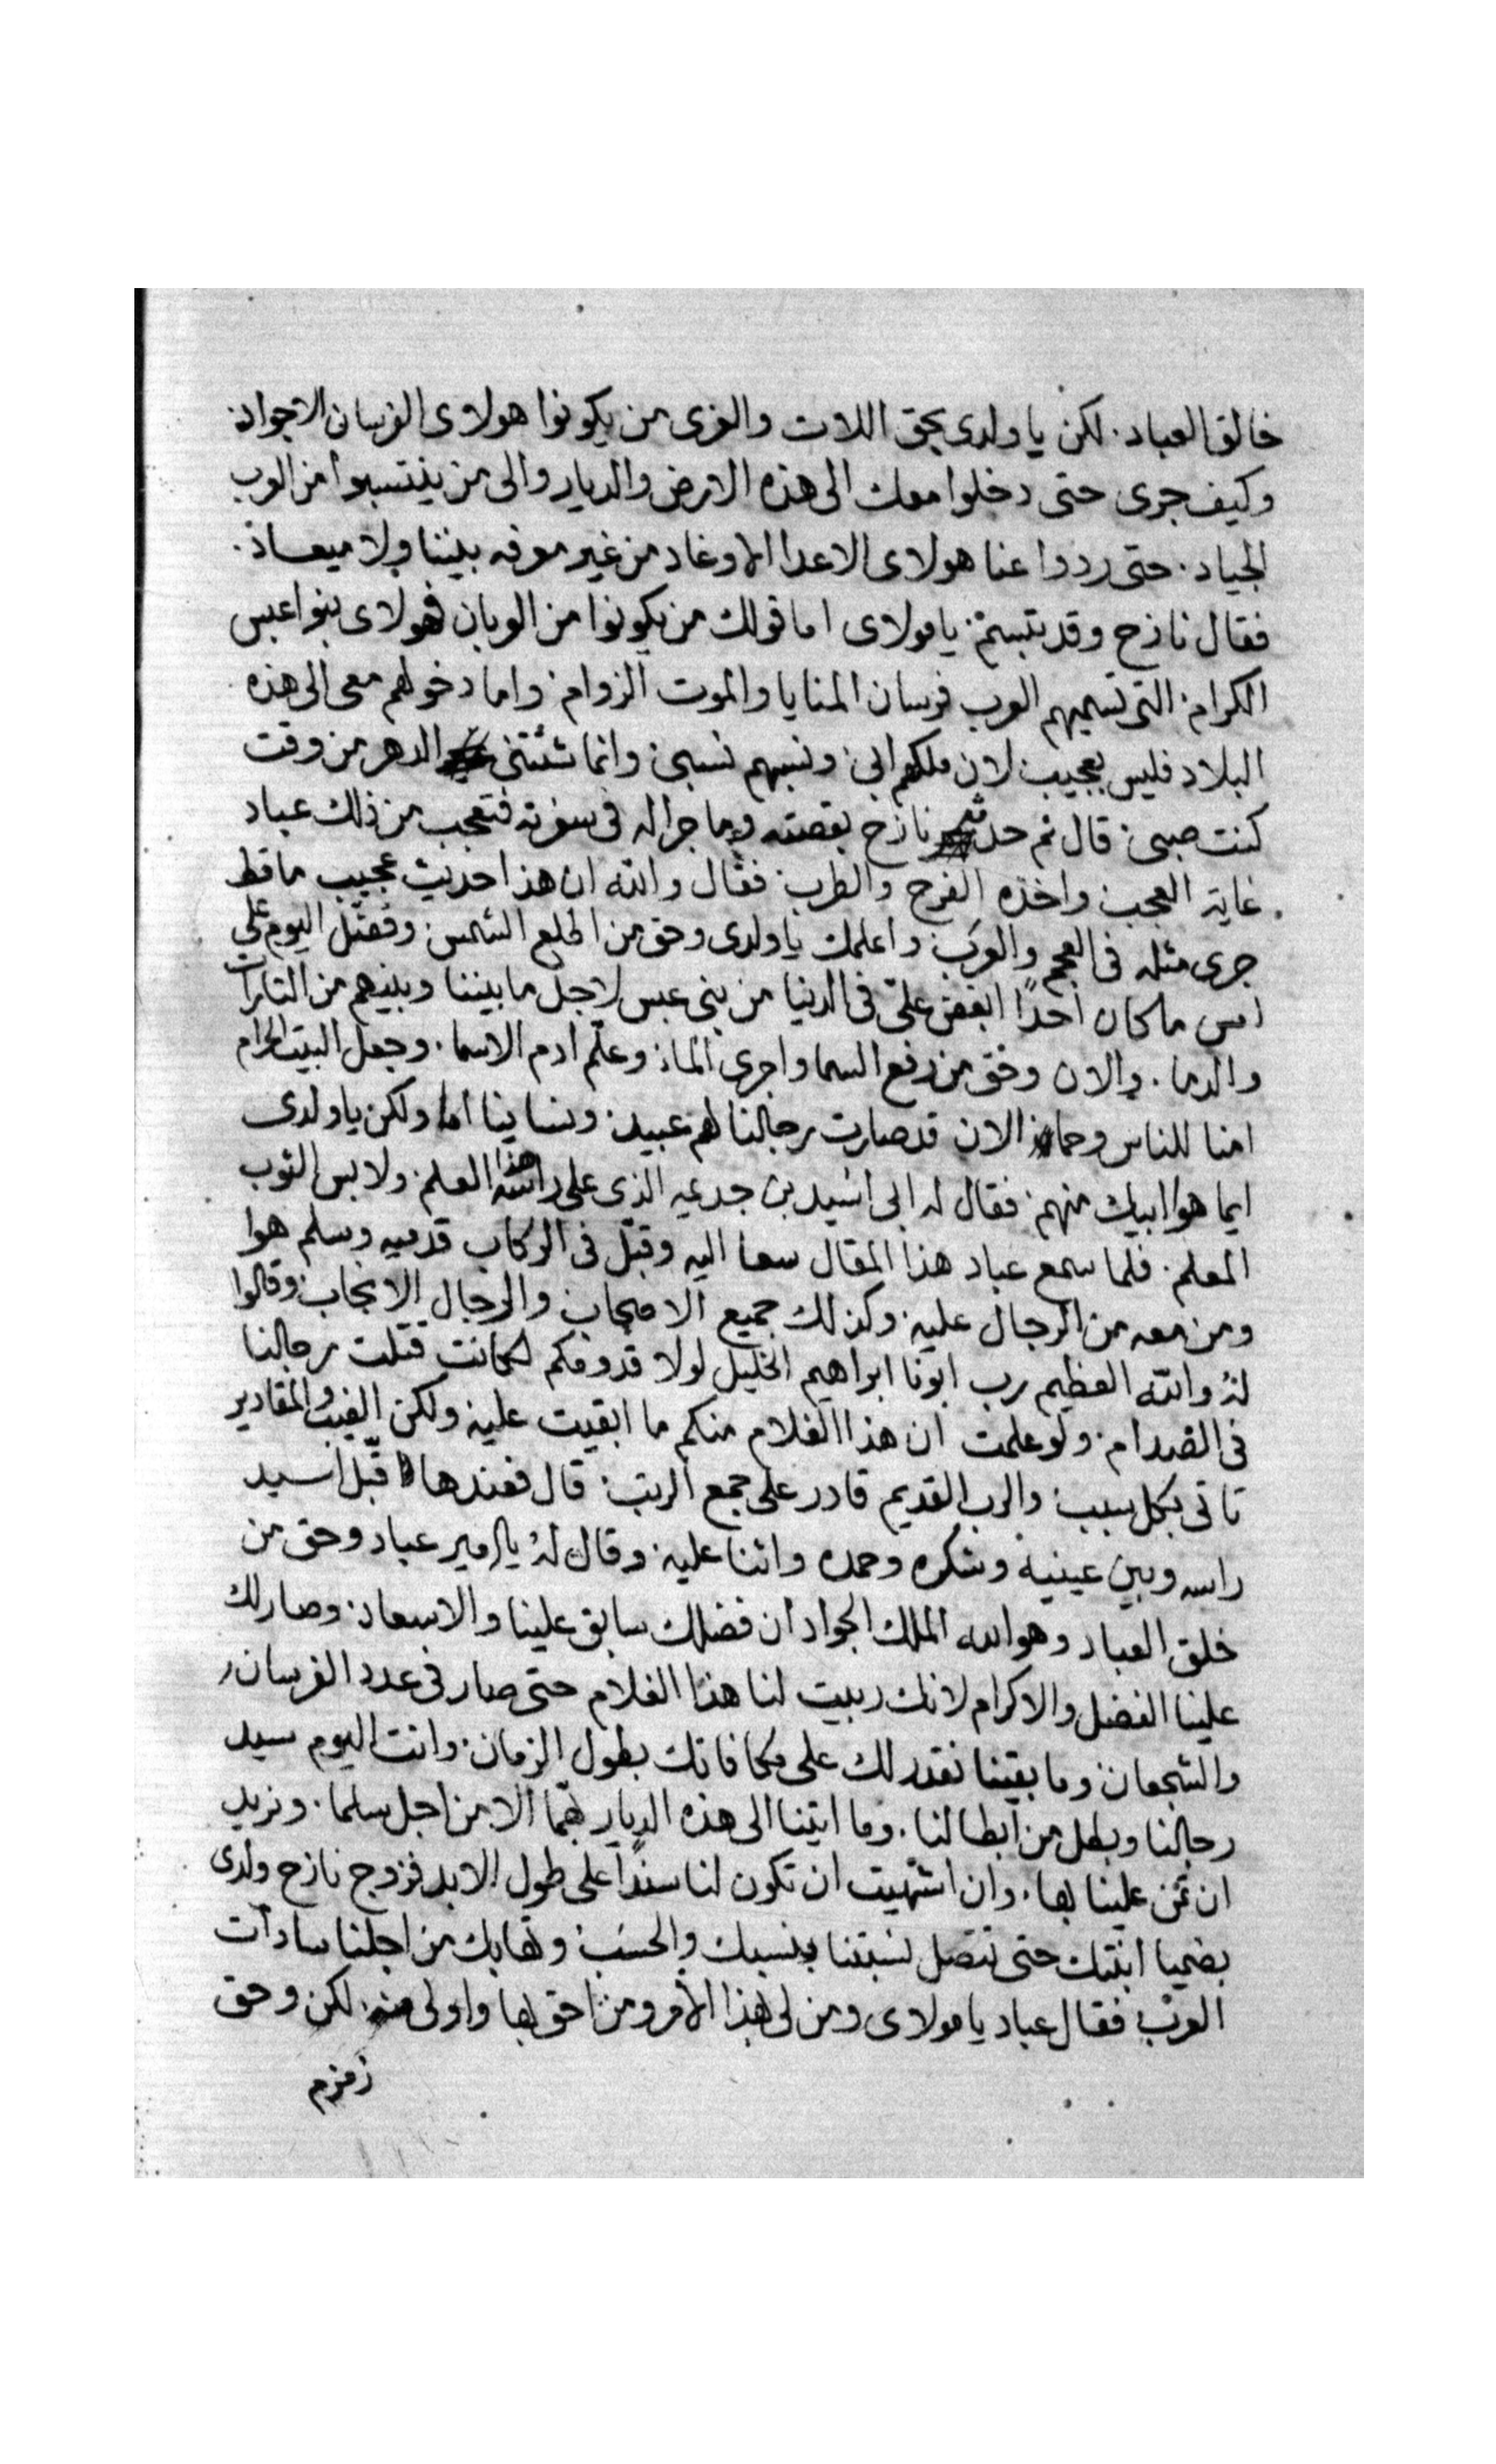 خالق العباد. لكن يا ولدى بحق اللات والعزى من يكونوا هولاى الفرسان الاجواد
وكيف جرى حتى دخلوا معك الى هذه الارض والديار والى من ينتسبوا من العرب
الجياد. حتى ردوا عنا هولاى الاعدا الاوغاد من غير معرفه بيننا ولا ميعاد.
فقال نازح وقد تبسم. يا مولاى اما قولك من يكونوا من العربان فهولاى بنوا عبس
الكرام. التى تسميهم العرب فرسان المنايا والموت الزوام. واما دخولهم معى الى هذه
البلاد فليس بعجيب لان ملكهم ابى. ونسبهم نسبى. وانما شتتنى الدهر من وقت
كنت صبى. قال ثم حدثهم نازح بقصته وما جرا له فى سفرته فتعجب من ذلك عباد
غاية العجب. واخذه الفرح والطرب. فقال والله ان هذا حديث عجيب ما قط
جرى مثله فى العجم والعرب. واعلمك يا ولدى وحق من اطلع الشمس. وفضّل اليوم على
امس ما كان احدًا ابغض علىّ فى الدنيا من بنى عبس لاجل ما بيننا وبينهم من التارات
والدما. والان وحق من رفع السما واجرى الماء. وعلّم ادم الاسما. وجعل البيت الحرام
امنا للناس وحما الان قد صارت رجالنا لهم عبيد. ونساينا اما ولكن يا ولدى
ايما هوا ابيك منهم. فقال له ابى اسيد بن جدعيه الذى على راسه هذا العلم. ولابس الثوب
المعلم. فلما سمع عباد هذا المقال سعا اليه وقبّل فى الركاب قدميه وسلم هوا
ومن معه من الرجال عليه. وكذلك جميع الاصحاب والرجال الانجاب. وقالوا
لهُ والله العظيم رب ابونا ابراهيم الخليل لولا قدومكم لكانت قتلت رجالنا
فى الصدام. ولو علمت ان هذا الغلام منكم ما ابقيت عليه. ولكن الغيب والمقادير
تاتى بكل سبب. والرب القديم قادر على جمع الريب. قال فعندها قبّل اسيد
راسه وبين عينيه وشكره وحمده واثنا عليه. وقال لهُ يا امير عباد وحق من
خلق العباد وهو الله الملك الجواد ان فضلك سابق علينا والاسعاد. وصار لك
علينا الفضل والاكرام لانك ربيت لنا هذا الغلام حتى صار فى عدد الفرسان
والشجعان. وما بقينا نقدر لك على مكافاتك بطول الزمان. وانت اليوم سيد
رجالنا وبطل من ابطالنا. وما اتينا الى هذه الديار الا من اجل سلما. ونريد
ان تمن علينا بها. وان اشتهيت ان تكون لنا سندًا على طول الابد فزوج نازح ولدى
بضميا ابنتك حتى تتصل نسبتنا بنسبك والحسب. وتهابك من اجلنا سادات
العرب فقال عباد يا مولاى ومن لى بهذا الامر ومن احق بها واولى منه. لكن وحق
زمزم